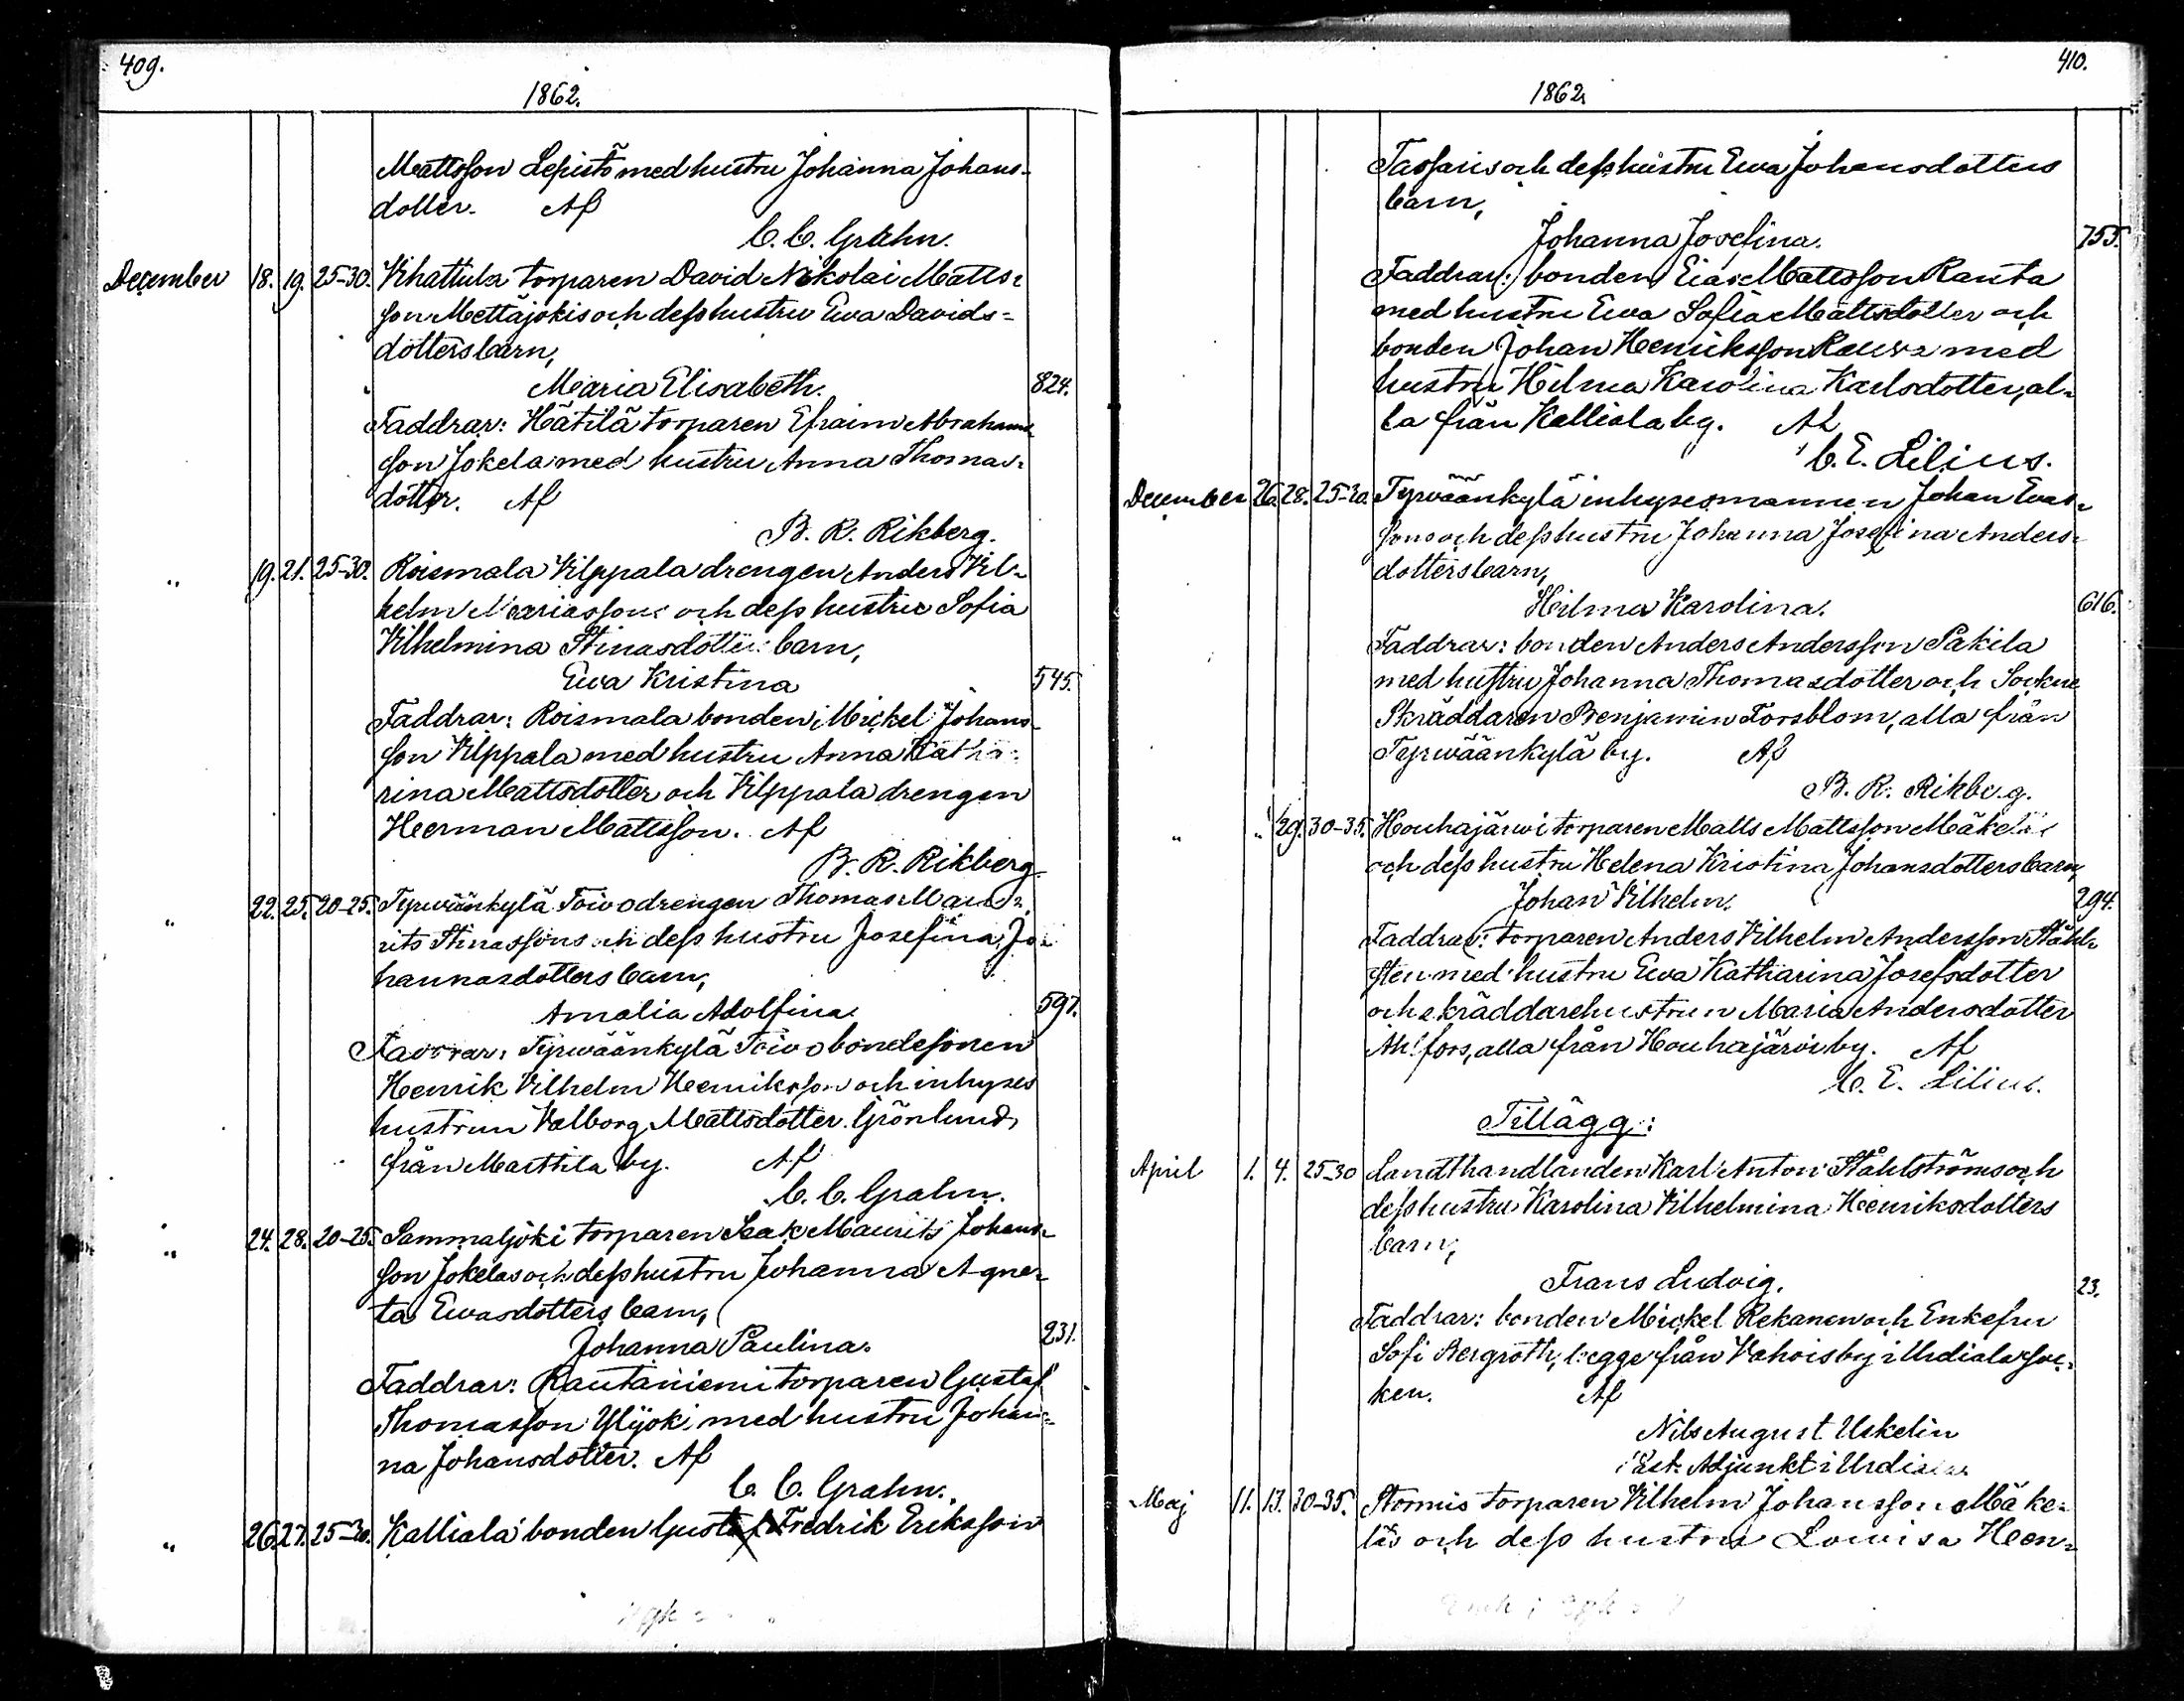 409.
1862.
Mattsson Lepistö med hustru Johanna Johans-
dotter. Af
C. C. Grahn.
December 18. 19. 25-30. Vihattula torparen David Nikolai Matts-
son Mettäjokis och dess hustru Ewa Davids-
dotters barn,
Maria Elisabeth. 824.
Faddrar: Hätilä torparen Efraim Abrahams-
son Jokela med hustru Anna Thomas-
dotter. Af
B. R. Rikberg.
" 19. 21. 25-30. Roismala Vilppala drengen Anders Vil-
helm Mariassons och dess hustru Sofia
Vilhelmina Stinasdotters barn,
Ewa Kristina 545.
Faddrar: Roismala bonden Mickel Johans-
son Vilppala med hustru Anna Katha-
rina Mattsdotter och Vilppala drengen
Herman Mattsson. Af
B. R. Rikberg.
" 22. 25. 20-25. Tyrwäänkylä Toivo drengen Thomas Mau-
rits Stinassons och dess hustru Josefina Jo-
hannasdotters barn,
Amalia Adolfina. 597.
Faddrar: Tyrwäänkylä Toivo bondesonen
Henrik Vilhelm Henriksson och inhyses
hustrun Valborg Mattsdotter Grönlund,
från Marttila by. Af
C. C. Grahn.
" 24. 28. 20-25. Sammaljoki torparen Isak Maurits Johans-
son Jokelas och dess hustru Johanna Agne-
ta Ewasdotters barn,
Johanna Paulina. 231.
Faddrar: Rautaniemi torparen Gustaf
Thomasson Ylijoki med hustru Johan-
na Johansdotter. Af
C. C. Grahn.
" 26. 27. 25-30. Kalliala bonden Gustaf Fredrik Eriksson
410.
1862.
Tassaris och dess hustru Ewa Johansdotters
barn,
Johanna Josefina. 755.
Faddrar: bonden Elias Mattsson Ranta
med hustru Ewa Sofia Mattsdotter och
bonden Johan Henriksson med
hustru Hilma Karolina Karlsdotter, al-
la från Kalliala by. Af
C. E. Lilius.
December 26. 28. 25-30. Tyrwäänkylä inhysesmannen Johan Ewas-
sons och dess hustru Johanna Josefina Anders-
dotters barn,
Hilma Karolina. 616.
Faddrar: bonden Anders Andersson Pakila
med hustru Johanna Thomasdotter och Sockne
Skräddaren Benjamin Forsblom, alla från
Tyrwäänkylä by. Af
B. R. Rikberg.
" " 29. 30-35. Houhajärwi torparen Matts Mattsson Mäkeläs
och dess hustru Helena Kristina Johansdotters barn,
Johan Vilhelm. 294.
Faddrar: torparen Anders Vilhelm Andersson Ståhl-
sten med hustru Ewa Katharina Josefsdotter
och skräddarehustrun Maria Andersdotter
Ahlfors, alla från Houhajärvi by. Af
C. E. Lilius.
Tillägg:
April 1. 4. 25-30 Landthandlanden Karl Anton Ståhlströms och
dess hustru Karolina Vilhelmina Henriksdotters
barn,
Frans Ludvig. 23.
Faddrar: bonden Mickel Rekanen och Enkefru
Sofi Bergroth, begge från Vahois by i Urdiala soc-
ken. Af
Nils August Uskelin
Adjunkt i Urdiala.
Maj 11. 13. 30-35. Stormis torparen Vilhelm Johansson Mäke-
läs och dess hustru Lowisa Hen-